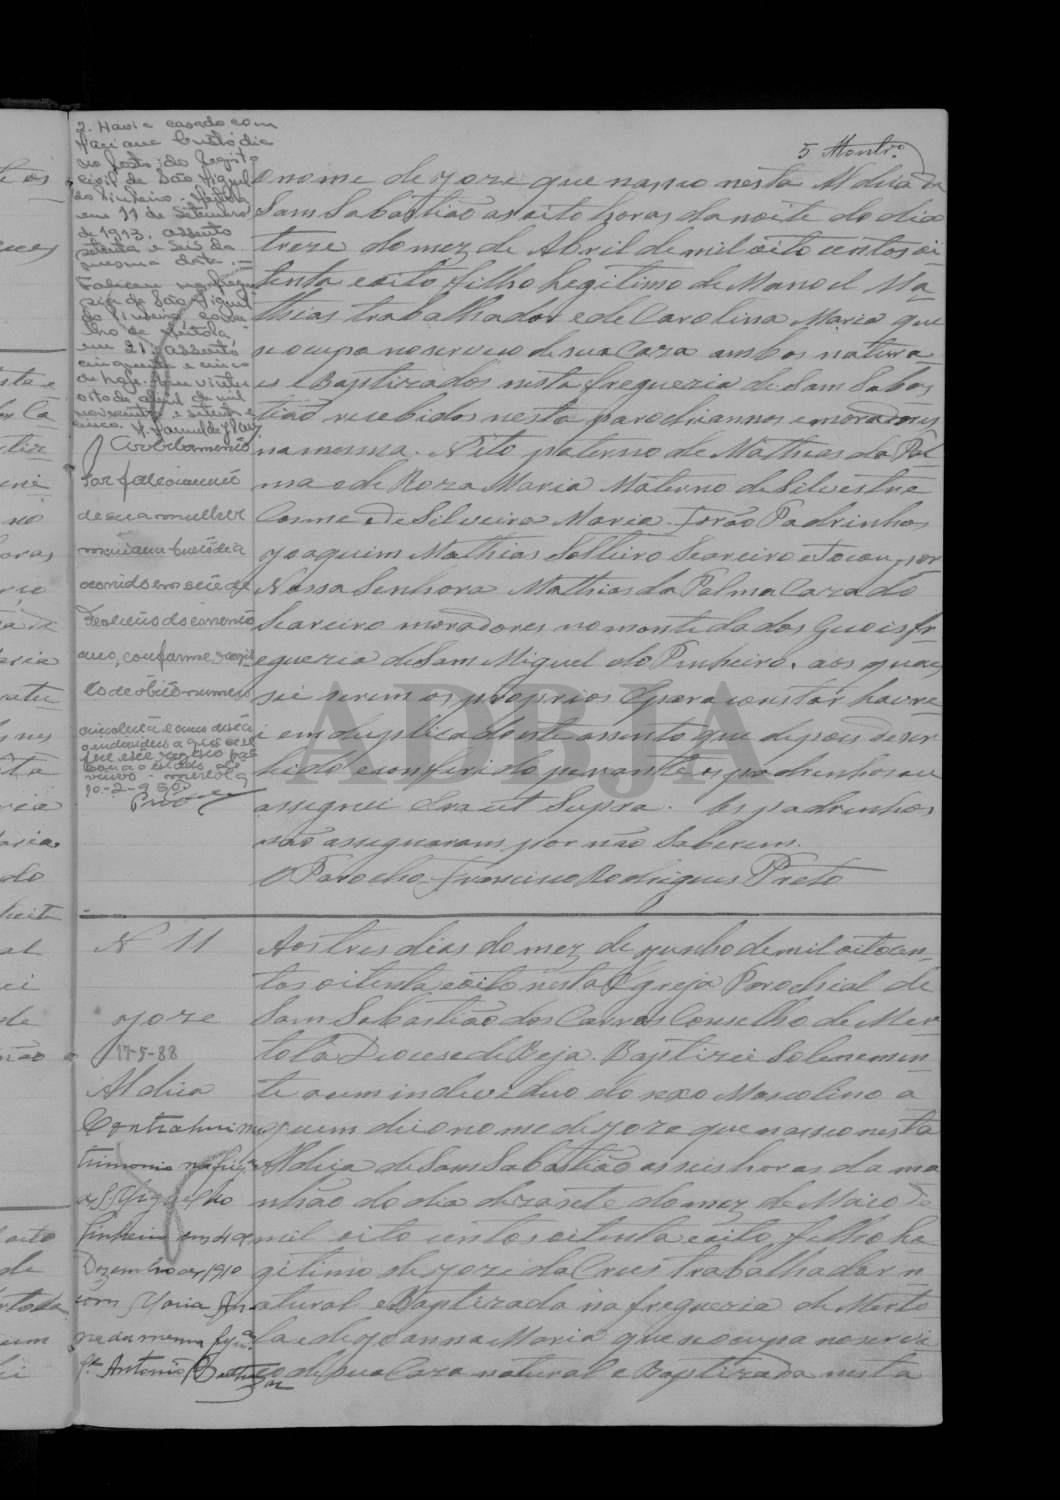 5 Montrº
o nome de Joze que nasceo nesta Aldeia de
Sam Sabastião as oito horas da noite do dia
treze do mez de Abril de mil oito centos oi-
tenta e oito filho legitimo de Manoel Ma-
thias trabalhador e de Carolina Maria que
se ocupa no serviço de sua Caza ambos natura
es e Baptizados nesta freguezia de Sam Sabas
tião recebidos nesta parochiannos e moradores
na mesma. Neto paterno de Mathias da Pal-
ma e de Roza Maria Materno de Silvestre
Cosme e de Silveira Maria. Forão Padrinhos
Joaquim Mathias Solteiro Seareiro e Tocou por
Nossa Senhora Mathias da Palma Cazado
Seareiro moradores no monte da dos fr-
eguezia de Sam Miguel do Pinheiro. aos quaes
sei serem os proprios E para constar lavre
i em duplicado este assento que depois de ser
lido e conferido perante os padrinhos eu
assignei Era ut Supra. Os padrinhos
não assignaram por não Saberem.
O Parocho Francisco Rodrigues Preto
2. Havi e casado com
Mariana Custódia
no Posto do Registo
civil de São Miguel
do Pinheiro - Mértola
em 11 de Setembro
de 1913. assento
setenta e seis da
mesma data.
Faleceu na fregue
sia de São Miguel
do Pinheiro, conse
lho de Mértola
em 21, assento
cinquenta e cinco
de hoje. Em vinte
oito de abril de mil
novecentos e setenta e
cinco.
Averbamento
Por falecimento
de sua mulher
mariana custódia
ocorrido em seis de
Fevereiro do corrente
ano, conforme regis-
to de óbito numero
foi este registo
viuvo - mertola
10-2-960
ADBJA
N 11
Joze
17-5-88
Aldeia
Contrahiu ma
trimonio na freg.ª
de S. Miguel do
Pinheiro em 4 de
Dezembro de 1910
com Maria An
na da mesma freg.ª
Antonio Balthazar
Aos tres dias do mez de Junho de mil oito cen-
tos oitenta e oito nesta Egreja Parochial de
Sam Sabastião dos Carros Conselho de Mer-
tola Diocese de Beja. Baptizei Solenemen-
te a um individuo do sexo Mascolino a
quem dei o nome de Joze que nasceo nesta
Aldeia de Sam Sabastião as seis horas da ma
nhão do dia dezasete do mez de Maio de
mil oito centos oitenta e oito, filho le
gitimo de Joze da Crus trabalhador n-
atural e Baptizada na freguezia de Merto
la e de Joanna Maria que se ocupa no servi
ço de sua Caza natural e Baptizada nesta